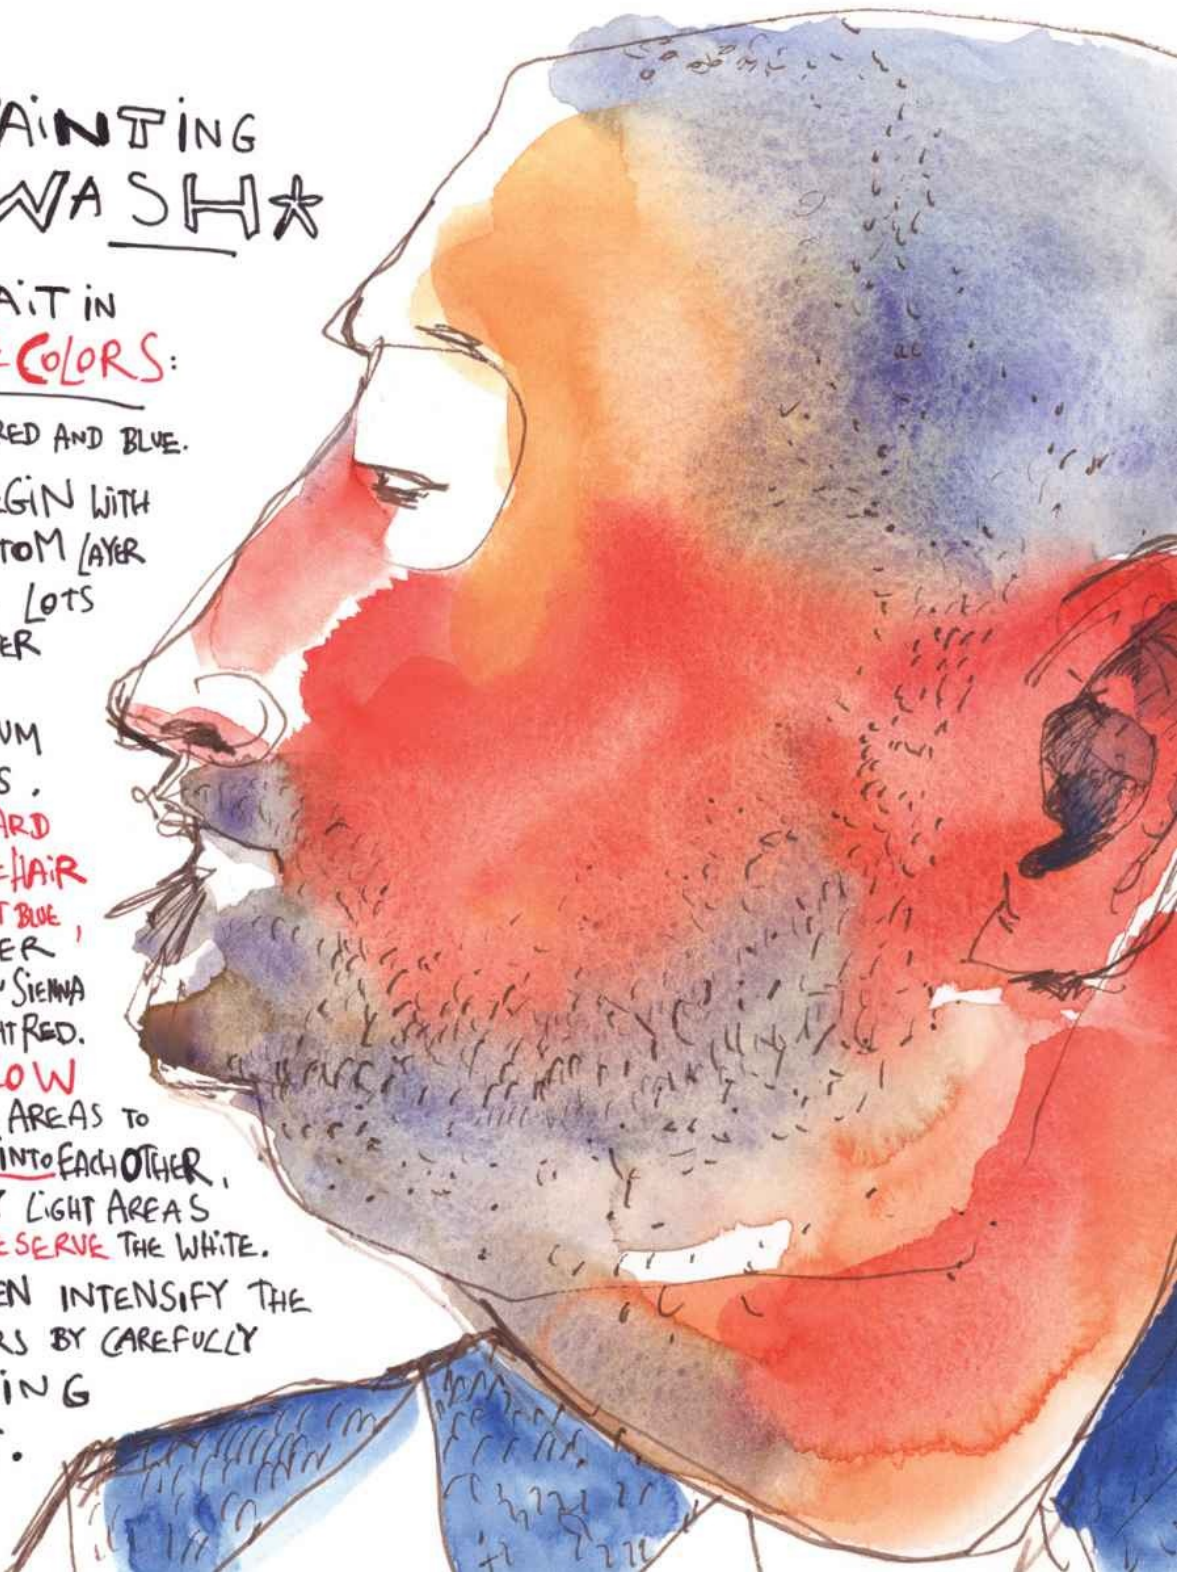 AiNTiNG
WASH*
AiT iN
COLORS:
RED AND BLUE.
GiN WiTH
TOM LAYER
LOTS
ER
UM
S.
ARD
HAiR
T BLUE,
ER
SIENNA
HT RED.
LOW
AREAS TO
INTO EACH OTHER,
LiGHT AREAS
ESERVE THE WHiTE.
EN INTENSIFY THE
RS BY CAREFULLY
iNG
.